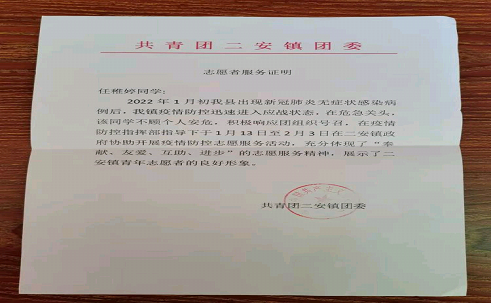 共青团二安镇团委
志愿者服务证明
任稚婷同学：
2022年1月初我县出现新冠肺炎无症状感染病
例后，我镇疫情防控迅速进入应战状态，在危急关头，
该同学不顾个人安危，积极响应团组织号召，在疫情
防控指挥部指导下于1月13日至2月3日在二安镇政
府协助开展疫情防控志愿服务活动，充分体现了“奉
献、友爱、互助、进步”的志愿服务精神，展示了二
安镇青年志愿者的良好形象。
共青团二安镇团委